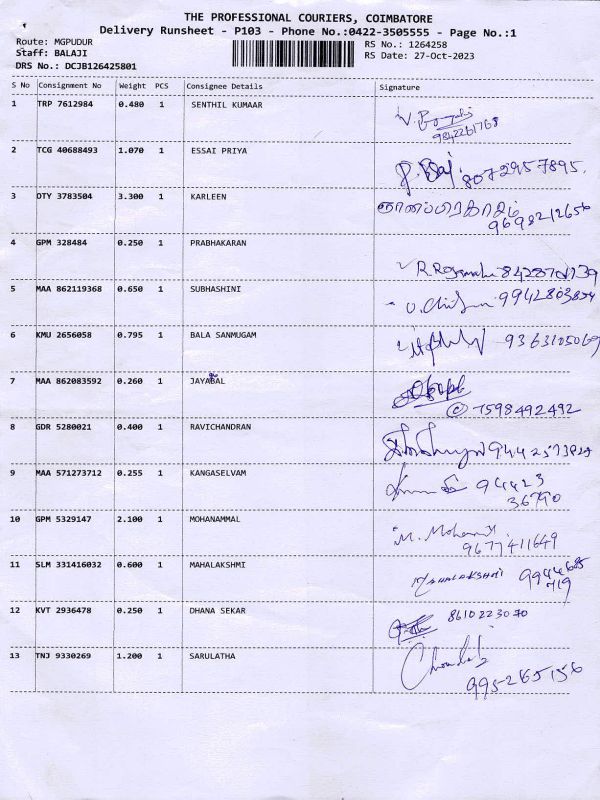 THE PROFESSIONAL COURIERS, COIMBATORE
Delivery Runsheet - P103 - Phone No.:0422-3505555 - Page No.:1
Route: MGPUDUR RS No.: 1264258
Staff: BALAJI RS Date: 27-Oct-2023
DRS No.: DCJB126425801
S No Consignment No Weight PCS Consignee Details Signature
1 TRP 7612984 0.480 1 SENTHIL KUMAAR
9842261768
2 TCG 40688493 1.070 1 ESSAI PRIYA
8072957895.
3 DTY 3783504 3.300 1 KARLEEN
ஞானப்பிரகாசம்
9698212656
4 GPM 328484 0.250 1 PRABHAKARAN
5 MAA 862119368 0.650 1 SUBHASHINI
6 KMU 2656058 0.795 1 BALA SANMUGAM
9363105069
7 MAA 862083592 0.260 1 JAYABAL
7598492492
8 GDR 5280021 0.400 1 RAVICHANDRAN
9 MAA 571273712 0.255 1 KANGASELVAM
94423
36790
10 GPM 5329147 2.100 1 MOHANAMMAL
9677411649
11 SLM 331416032 0.600 1 MAHALAKSHMI
MAHALAKSHMI 9944685
719
12 KVT 2936478 0.250 1 DHANA SEKAR
8610223070
13 TNJ 9330269 1.200 1 SARULATHA
995265156